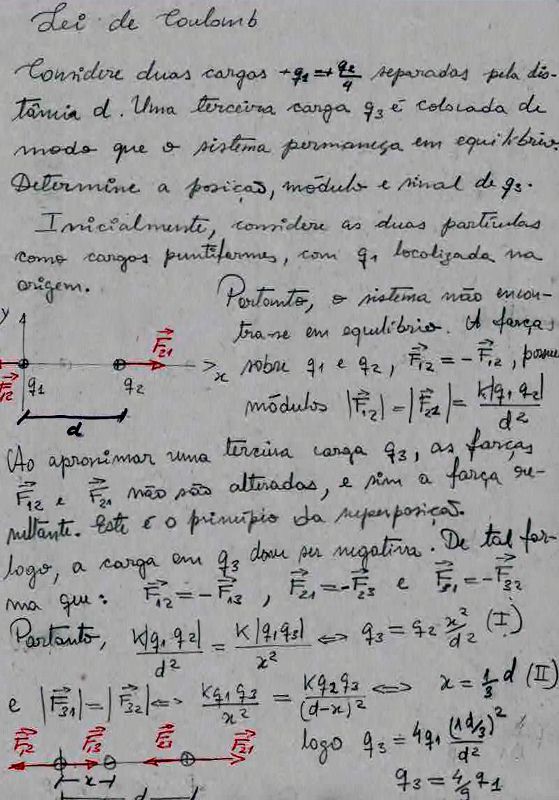 Lei de Coulomb
Considere duas cargas +q₁=+q₂/4 separadas pela dis-
tância d. Uma terceira carga q₃ é colocada de
modo que o sistema permaneça em equilíbrio.
Determine a posição, módulo e sinal de q₃.
Inicialmente, considere as duas partículas
como cargas puntiformes, com q₁ localizada na
origem.
Portanto, o sistema não encon-
tra-se em equilíbrio. A forças
sobre q₁ e q₂, F⃗₁₂ = -F⃗₁₂, possue
módulos |F⃗₁₂| = |F⃗₂₁| = K|q₁ q₂|/d²
y
F⃗₂₁
x
F⃗₁₂
q₁
q₂
d
Ao aproximar uma terceira carga q₃, as forças
F⃗₁₂ e F⃗₂₁ não são alteradas, e sim a força re-
sultante. Este é o princípio da superposição.
logo, a carga em q₃ deve ser negativa. De tal for-
ma que: F⃗₁₂ = -F⃗₁₃, F⃗₂₁ = -F⃗₂₃ e F⃗₃₁ = -F⃗₃₂
Portanto, K|q₁ q₂|/d² = K|q₁q₃|/x² ⇔ q₃ = q₂ x²/d² (I)
e |F⃗₃₁| = |F⃗₃₂| ⇔ Kq₁q₃/x² = Kq₂q₃/(d-x)² ⇔ x = 1/3 d (II)
F⃗₁₂ F⃗₁₃ F⃗₂₃ F⃗₂₁
x
d
logo q₃ = 4q₁ (1d/3)²/d²
q₃ = 4/9 q₁